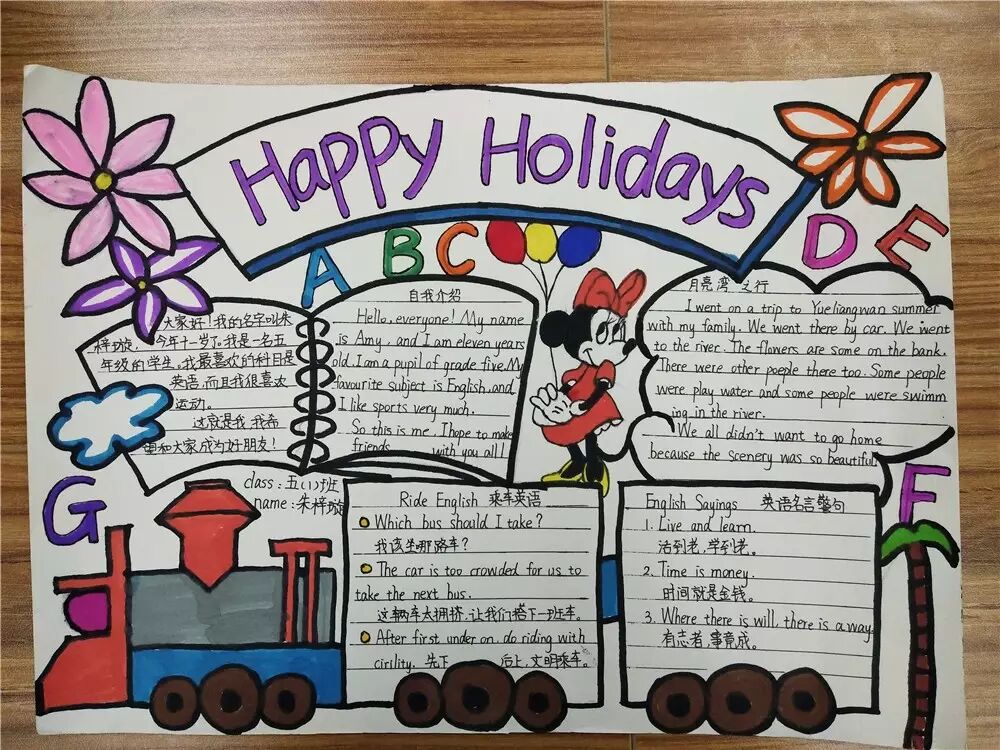 Happy Holidays
A B C
D E
大家好！我的名字叫朱
梓璇，今年十一岁了。我是一名五
年级的学生。我最喜欢的科目是
英语，而且我很喜欢
运动。
这就是我，我希
望和大家成为好朋友！
自我介绍
Hello, everyone! My name
is Amy, and I am eleven years
old. I am a pupil of grade five. My
favourite subject is English, and
I like sports very much.
So this is me, I hope to make
friends with you all!
月亮湾之行
I went on a trip to Yueliangwan summer
with my family. We went there by car. We went
to the river. The flowers are some on the bank.
There were other poeple there too. Some people
were play water and some people were swimm
ing in the river.
We all didn't want to go home
because the scenery was so beautiful
G
class : 五(1)班
name : 朱梓璇
Ride English 乘车英语
Which bus should I take?
我该坐哪路车？
The car is too crowded for us to
take the next bus.
这辆车太拥挤，让我们搭下一班车。
After first under on, do riding with
cirility. 先下 后上，文明乘车。
English Sayings 英语名言警句
1. Live and learn.
活到老，学到老。
2. Time is money.
时间就是金钱。
3. Where there is will, there is a way.
有志者，事竟成。
F